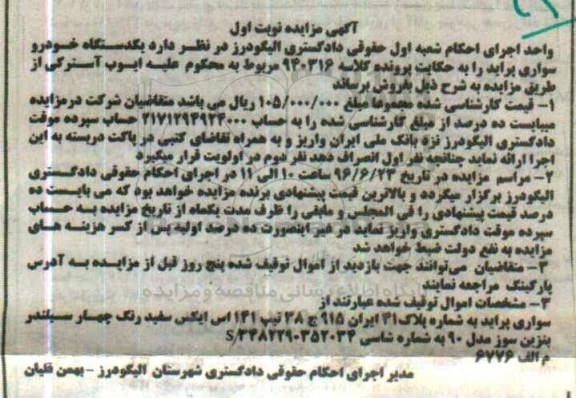 آگهی مزایده نوبت اول
واحد اجرای احکام شعبه اول حقوقی دادگستری الیگودرز در نظر دارد یکدستگاه خودرو
سواری پراید را به حکایت پرونده کلاسه ۹۴۰۳۱۶ مربوط به محکوم علیه ایوب آسترکی از
طریق مزایده به شرح ذیل بفروش برساند
۱- قیمت کارشناسی شده مجموعا مبلغ ۱۰۵/۰۰۰/۰۰۰ ریال می باشد متقاضیان شرکت درمزایده
میبایست ده درصد از مبلغ کارشناسی شده را به حساب ۲۱۷۱۲۹۴۹۲۴۰۰۰ سپرده موقت
دادگستری الیگودرز نزد بانک ملی ایران واریز و به همراه تقاضای کتبی در پاکت دربسته به این
اجرا ارائه نماید چنانچه نفر اول انصراف دهد نفر دوم در اولویت قرار میگیرد
۲- مراسم مزایده در تاریخ ۹۶/۶/۲۳ ساعت ۱۰ الی ۱۱ در اجرای احکام حقوقی دادگستری
الیگودرز برگزار میگردد و بالاترین قیمت پیشنهادی برنده مزایده خواهد بود که می بایست ده
درصد قیمت پیشنهادی را فی المجلس و مابقی را ظرف مدت یکماه از تاریخ مزایده به حساب
سپرده موقت دادگستری واریز نماید در غیر اینصورت ده درصد اولیه پس از کسر هزینه های
مزایده به نفع دولت ضبط خواهد شد
۳- متقاضیان می‌توانند جهت بازدید از اموال توقیف شده پنج روز قبل از مزایده به آدرس
پارکینگ مراجعه نمایند
۳- مشخصات اموال توقیف شده عبارتند از
سواری پراید به شماره پلاک۴۱ ایران ۹۱۵ ج ۳۸ تیپ ۱۴۱ اس ایکس سفید رنگ چهار سیلندر
بنزین سوز مدل ۹۰ به شماره شاسی S/۳۴۸۲۲۹۰۳۵۲۰۳۴
م الف ۶۷۷۶
مدیر اجرای احکام حقوقی دادگستری شهرستان الیگودرز - بهمن قلیان